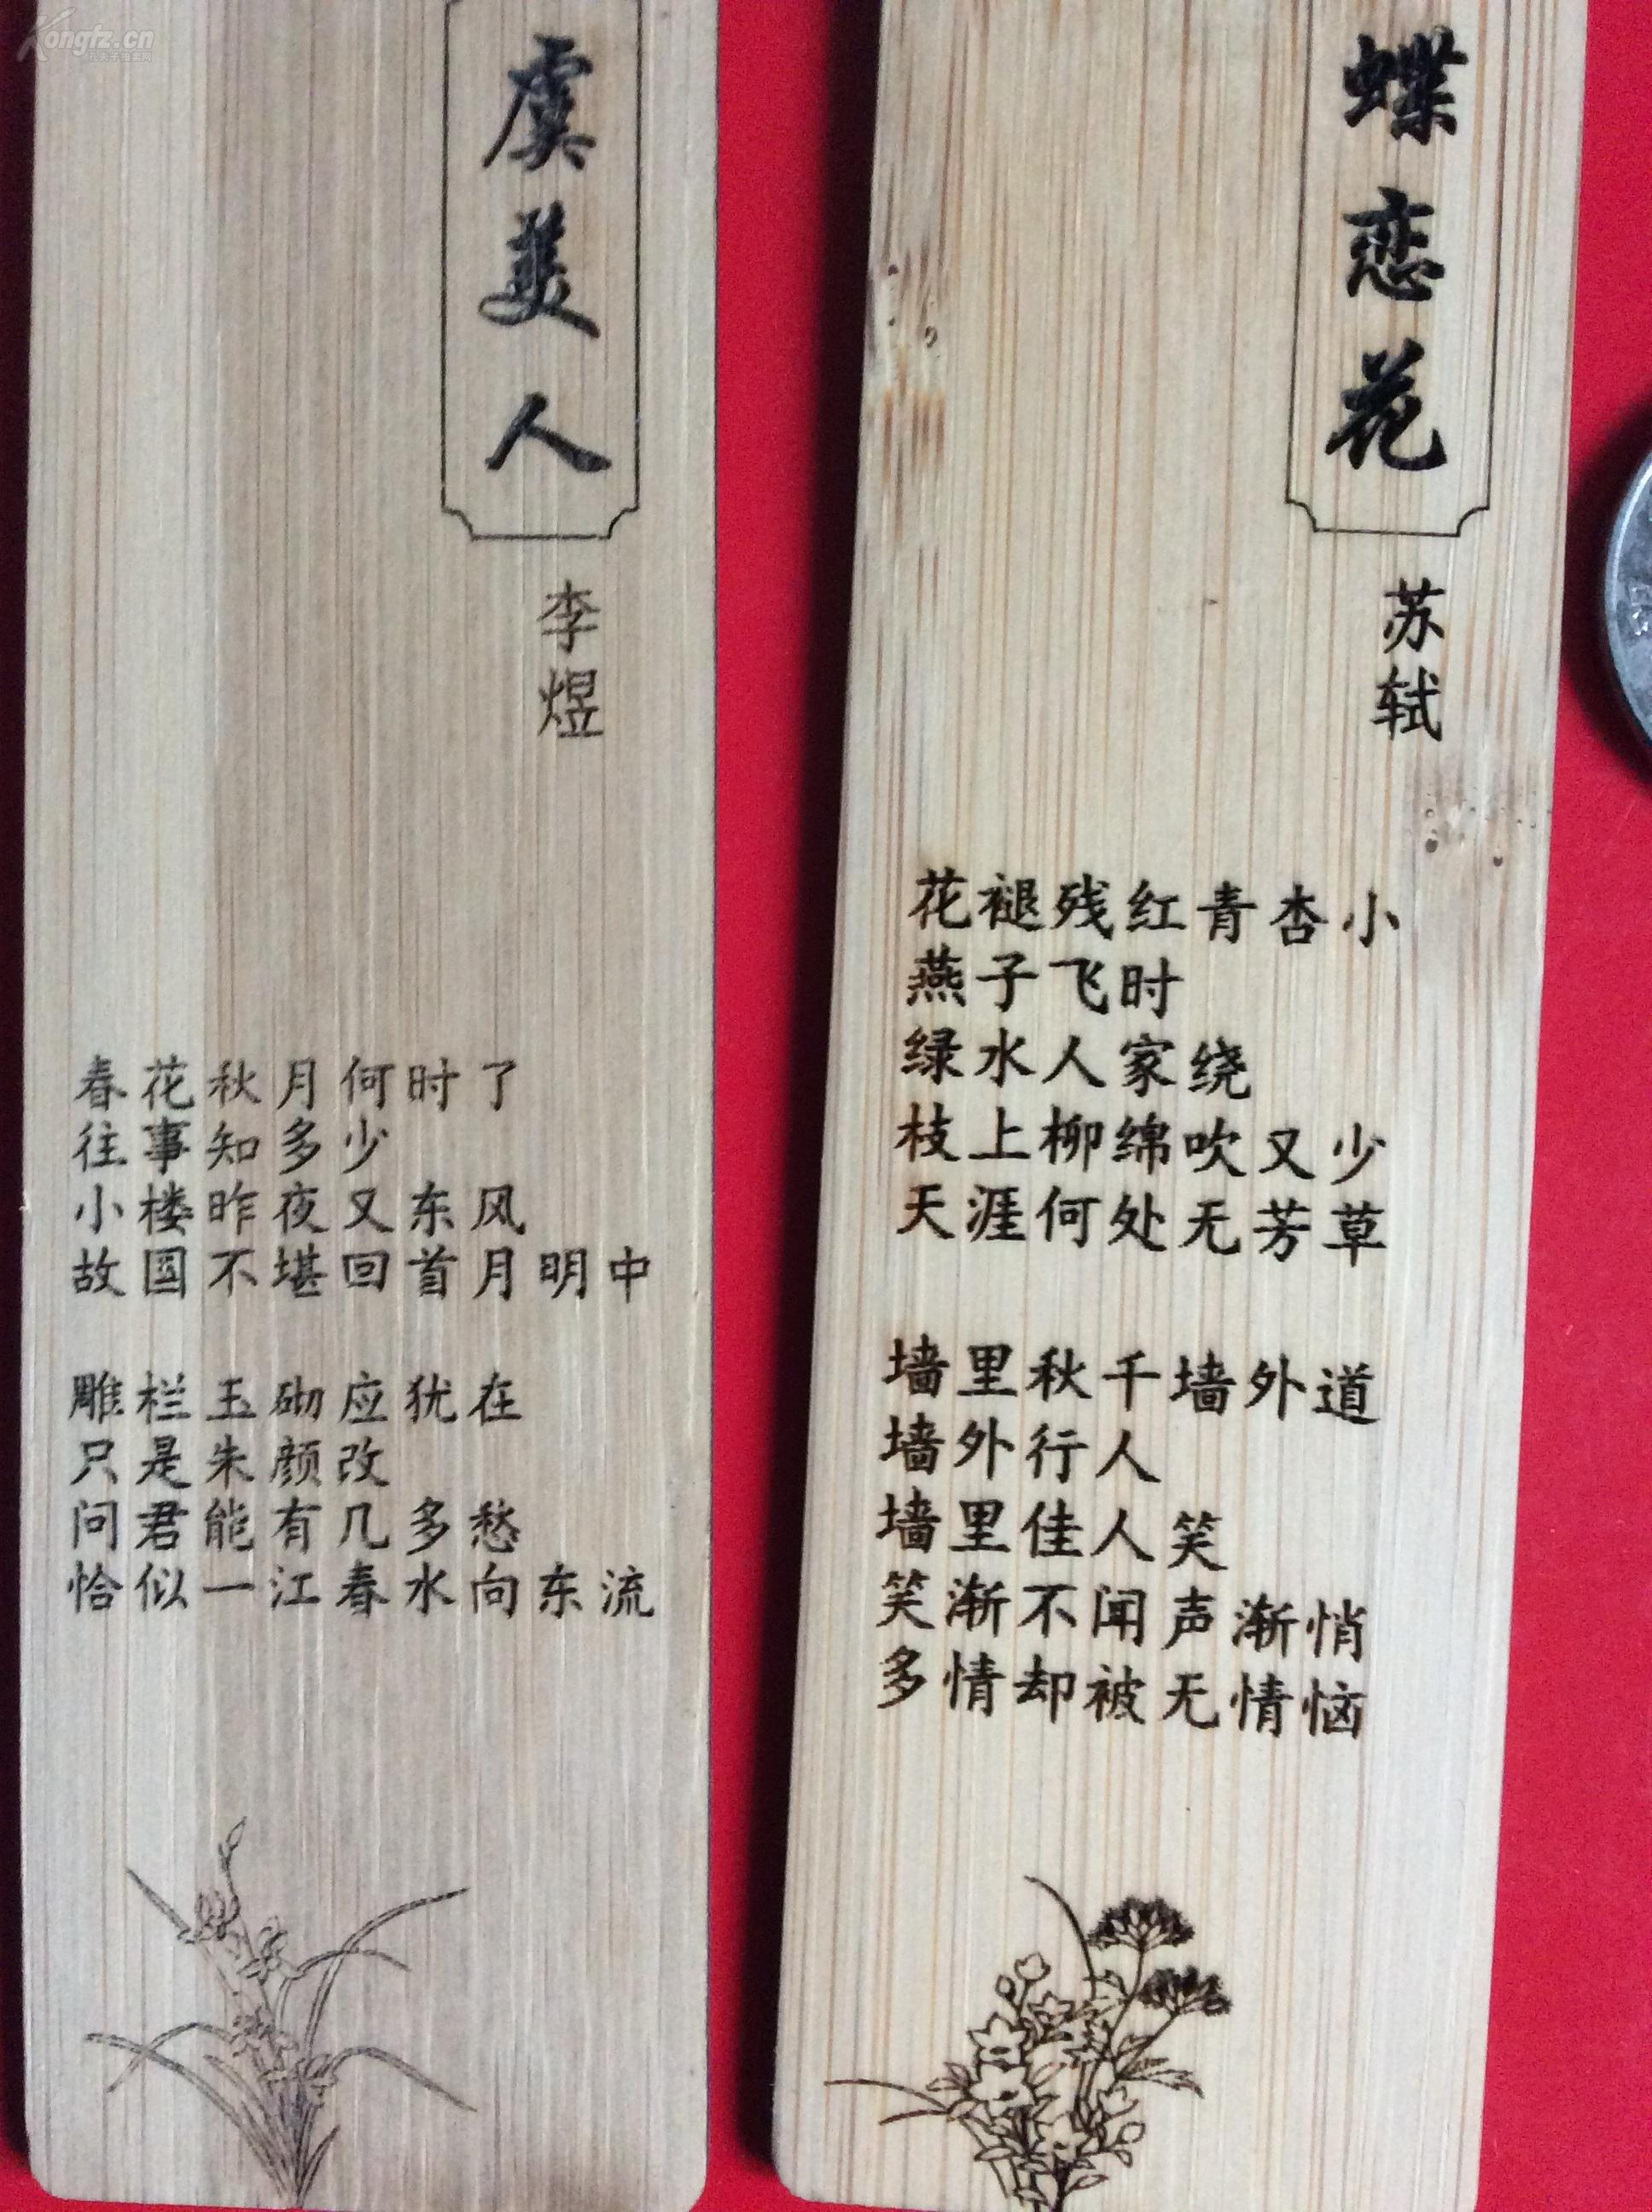 Kongfz.cn
虞美人
李煜
春花秋月何时了
往事知多少
小楼昨夜又东风
故国不堪回首月明中
雕栏玉砌应犹在
只是朱颜改
问君能有几多愁
恰似一江春水向东流
蝶恋花
苏轼
花褪残红青杏小
燕子飞时
绿水人家绕
枝上柳绵吹又少
天涯何处无芳草
墙里秋千墙外道
墙外行人
墙里佳人笑
笑渐不闻声渐悄
多情却被无情恼